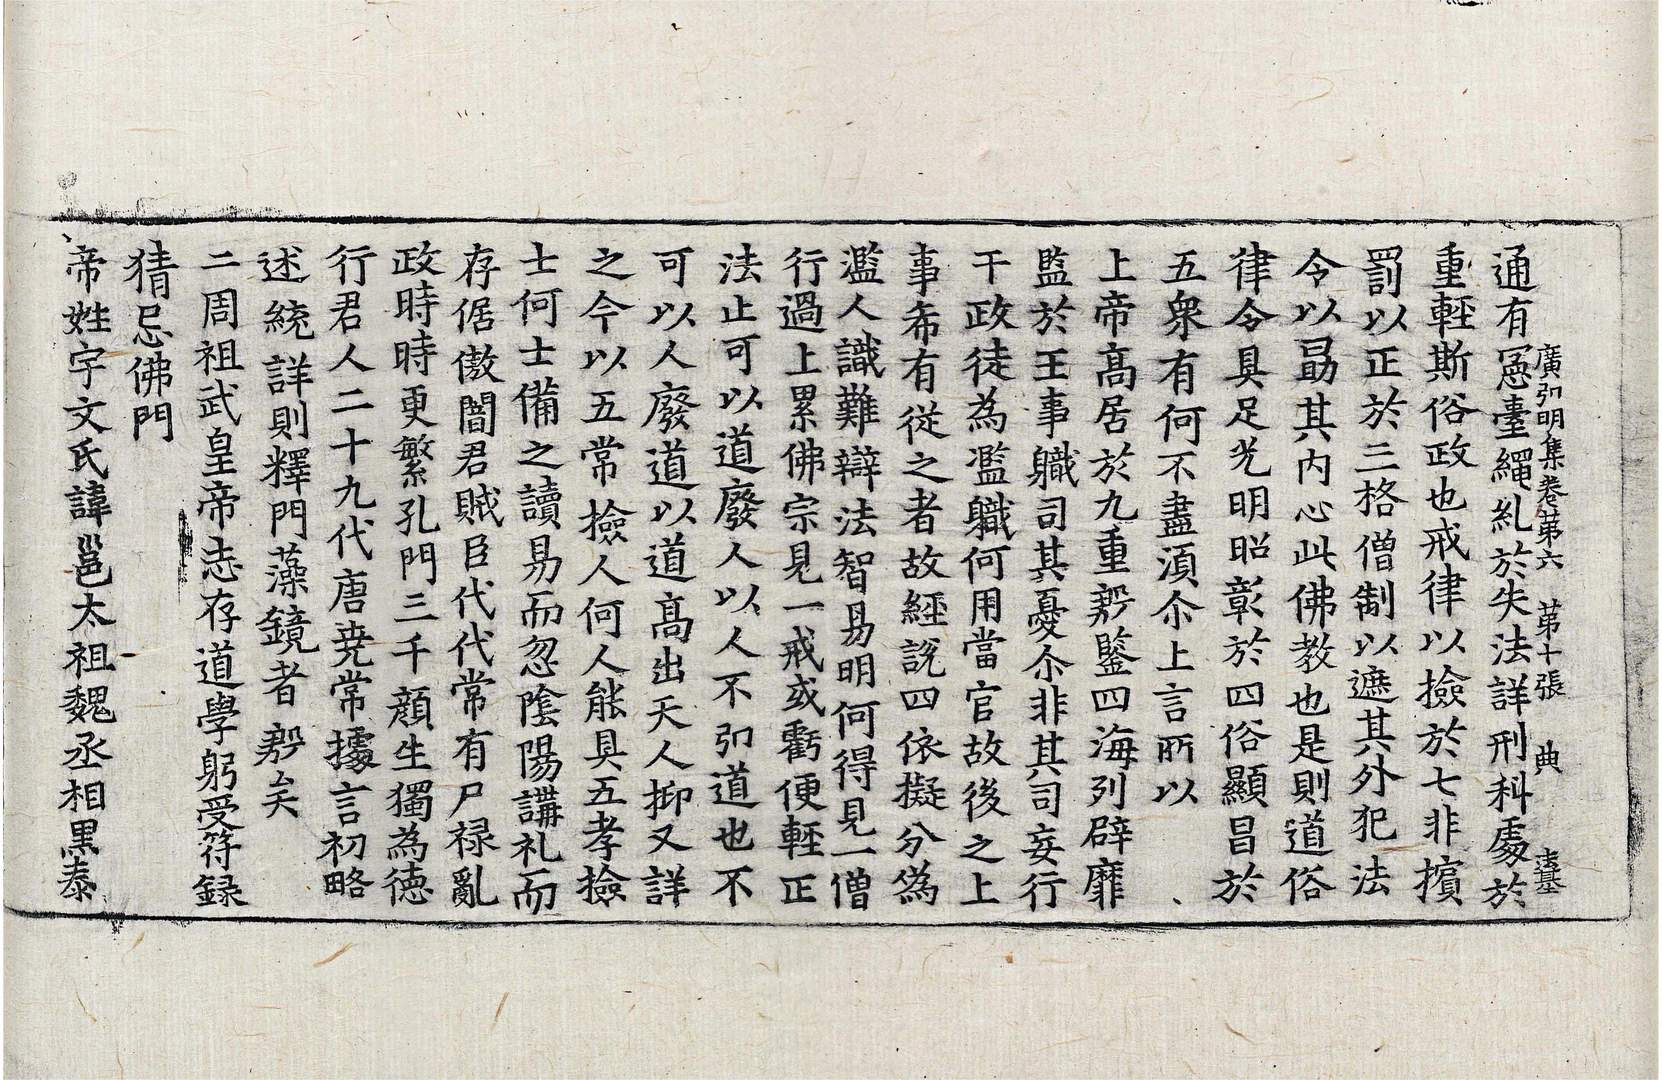 廣弘明集卷第六 第十張 典
通有憲臺繩糺於失法詳刑科處於
重輕斯俗政也戒律以撿於七非擯
罰以正於三格僧制以遮其外犯法
令以勗其内心此佛教也是則道俗
律令具足光明昭彰於四俗顯昌於
五衆有何不盡湏尒上言所以
上帝高居於九重斵鑒四海列辟靡
監於王事職司其憂尒非其司妄行
干政徒為濫職何用當官故後之上
事希有從之者故經說四依擬分為
濫人識難辯法智易明何得見一僧
行過上累佛宗見一戒或虧便輕正
法止可以道廢人以人不弘道也不
可以人廢道以道高出天人抑又詳
之今以五常撿人何人能具五孝撿
士何士備之讀易而忽陰陽講礼而
存倨傲闇君賊臣代代常有尸禄亂
政時時更繁孔門三千顔生獨為德
行君人二十九代唐堯常據言初略
述統詳則釋門藻鏡者斵矣
二周祖武皇帝志存道學躬受符録
猜忌佛門
帝姓宇文氏諱邕太祖魏丞相黑泰